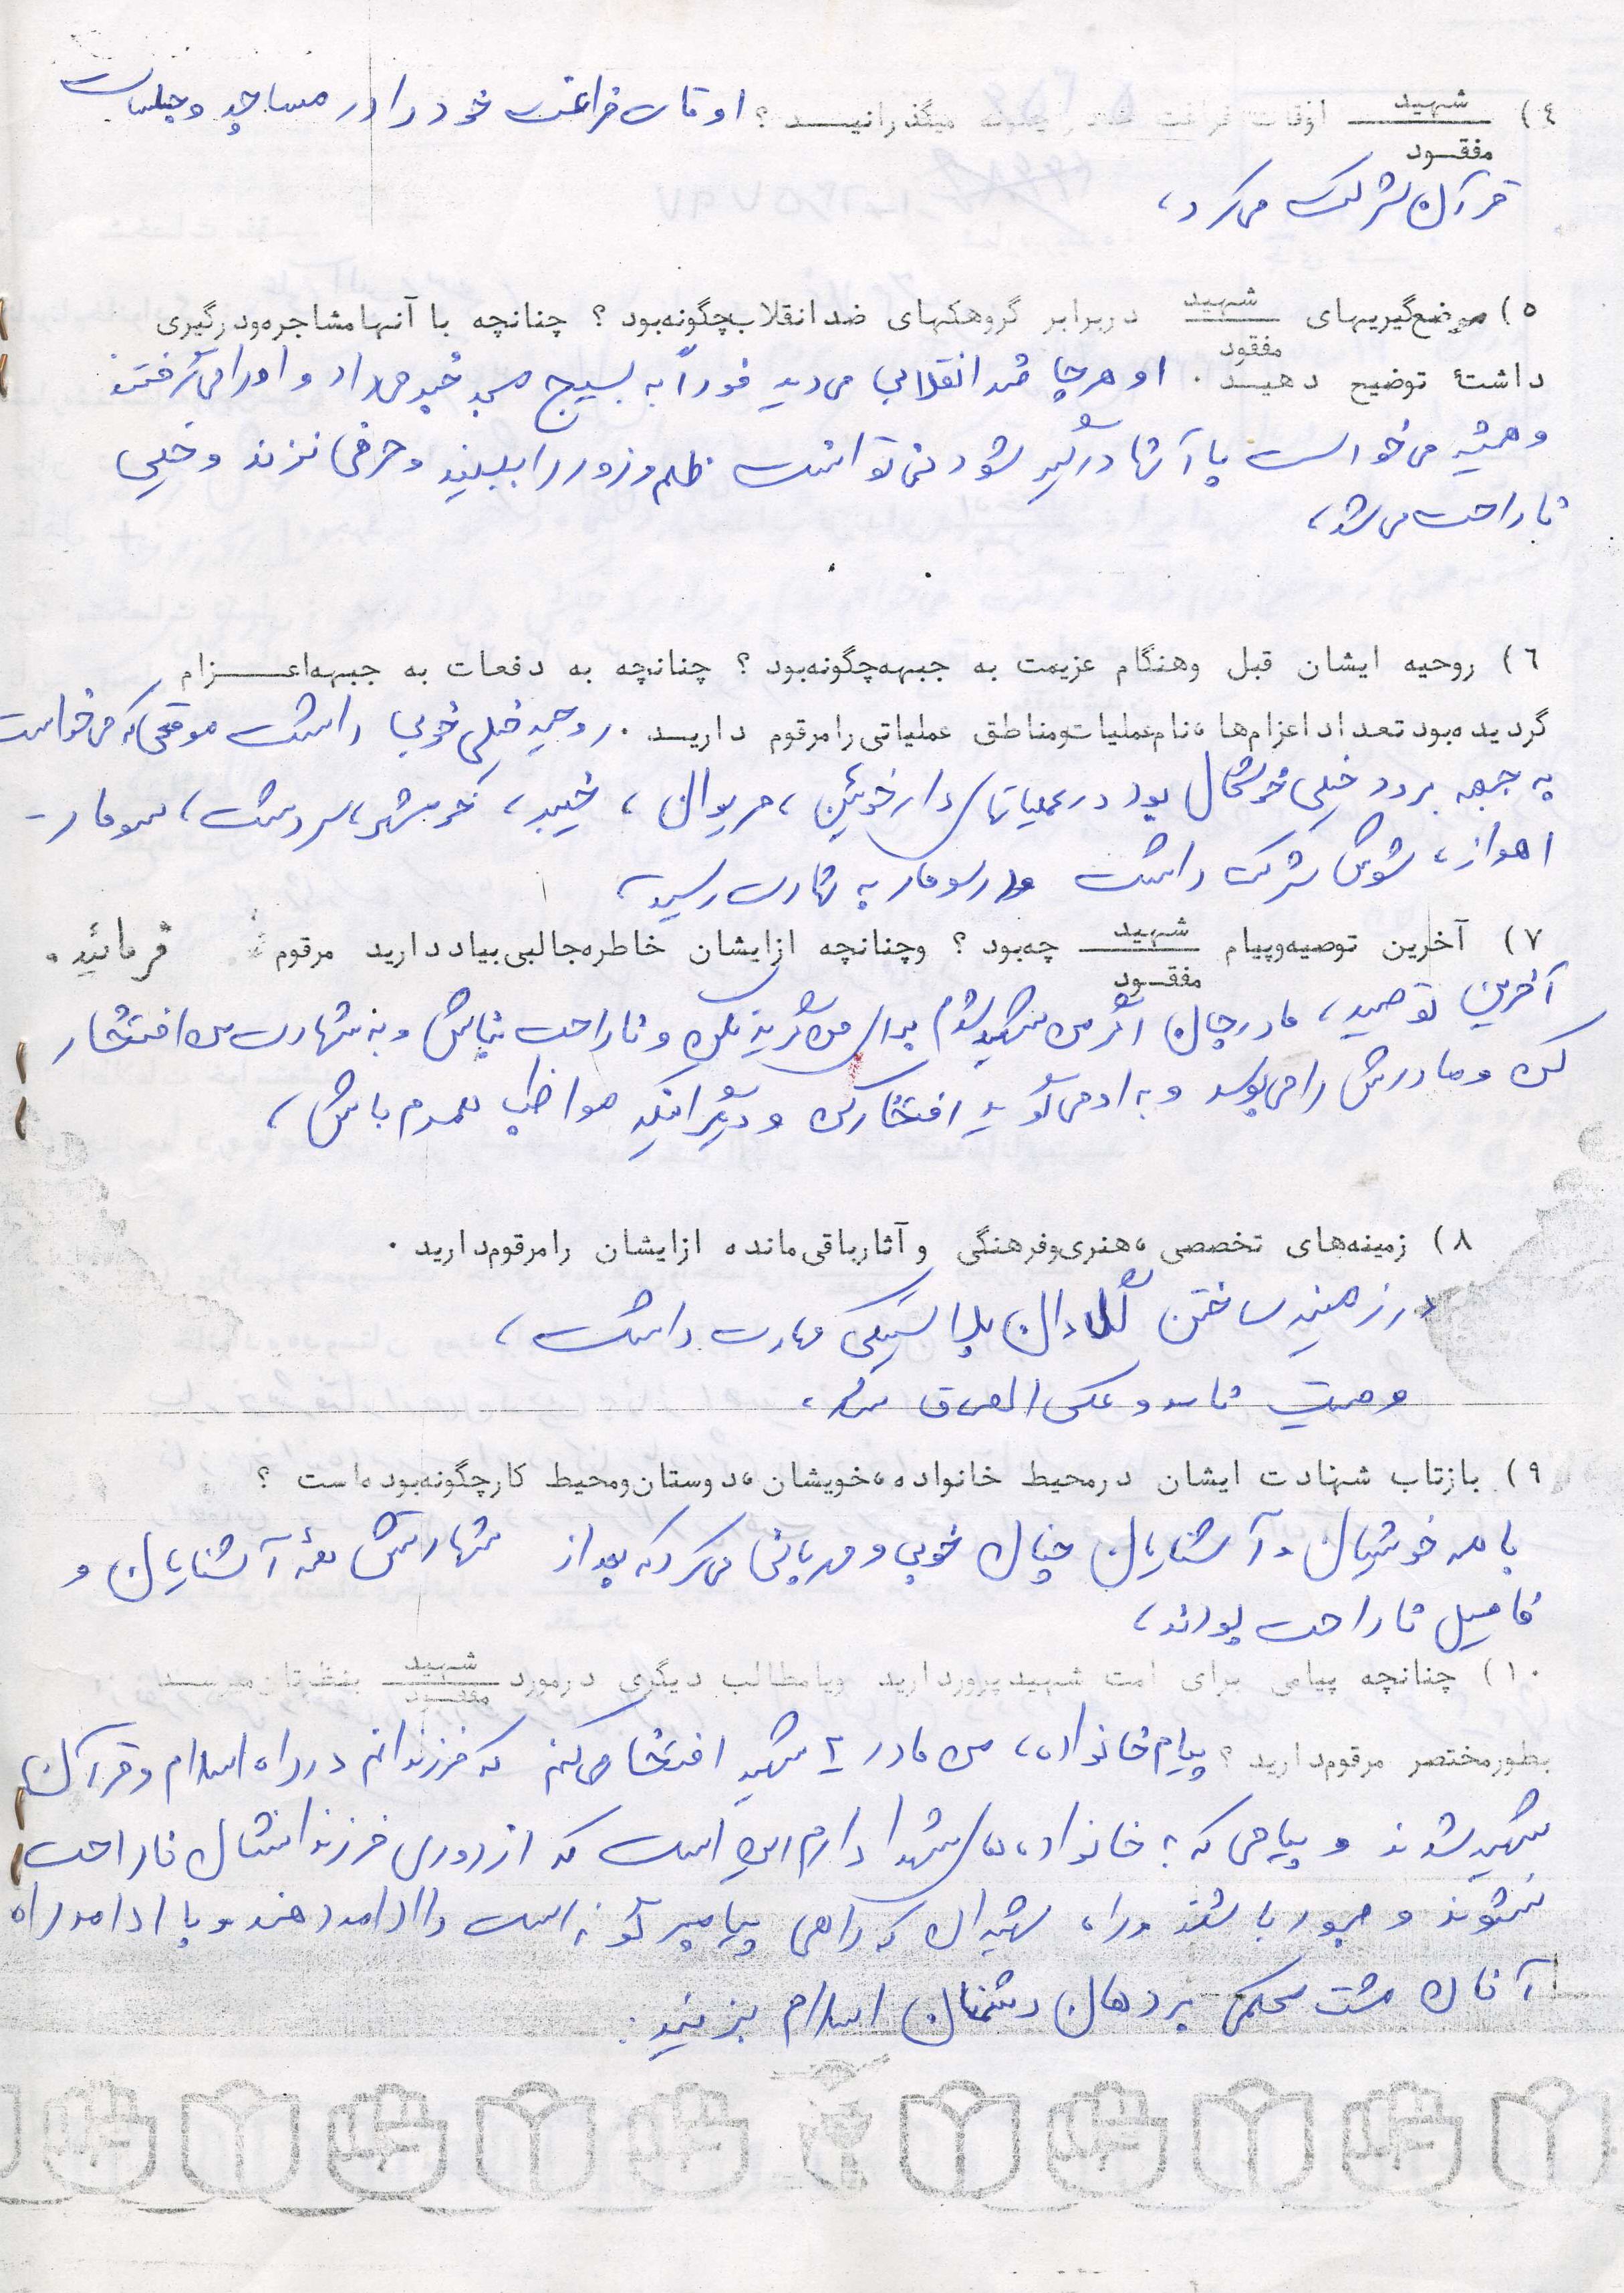 ٤) شهید / مفقود اوقات فراغت خود را چگونه میگذرانید ؟ اوقات فراغت خود را در مساجد و جلسات
قرآن شرکت می‌کرد،
٥) موضعگیریهای شهید / مفقود دربرابر گروهکهای ضدانقلاب چگونه بود ؟ چنانچه با آنها مشاجره و درگیری
داشتهٔ توضیح دهید . او هر جا ضد انقلابی می‌دید فوراً به بسیج مسجد خبر می‌داد و او را می‌گرفتند
و همیشه می‌خواست با آنها درگیر شود نمی‌توانست ظلم و زور را ببیند و حرفی نزند و خیلی
ناراحت می‌شد،
٦) روحیه ایشان قبل وهنگام عزیمت به جبهه چگونه بود ؟ چنانچه به دفعات به جبهه اعزام
گردیده بود تعداد اعزام‌ها ، نام عملیات و مناطق عملیاتی را مرقوم دارید . روحیه خیلی خوبی داشت موقعی که می‌خواست
به جبهه برود خیلی خوشحال بود در عملیاتهای دارخوئین ، مریوان ، خیبر ، خرمشهر، سردشت، سومار -
اهواز ، شوش شرکت داشت و در سومار به شهادت رسید،
٧) آخرین توصیه و پیام شهید / مفقود چه بود ؟ وچنانچه از ایشان خاطره جالبی بیاد دارید مرقوم فرمائید .
آخرین توصیه ، مادر جان اگر من شهید شدم برای من گریه نکن و ناراحت نباش و به شهادت من افتخار
کن و مادرش را می‌بوسد و به او می‌گوید افتخار کن و دیگر اینکه مواظب همسرم باش ،
٨) زمینه‌های تخصصی ، هنری و فرهنگی و آثار باقی مانده از ایشان را مرقوم دارید .
در زمینه ساختن گلدان پلاستیکی مهارت داشت ،
وصیت نامه و عکس الصاق شد،
٩) بازتاب شهادت ایشان درمحیط خانواده ، خویشان ، دوستان و محیط کار چگونه بوده است ؟
با همه خوشیان و آشنایان چنان خوبی و مهربانی می‌کرد که بعد از شهادتش همهٔ آشنایان و
فامیل ناراحت بودند ،
١٠) چنانچه پیامی برای امت شهیدپرور دارید ویا مطالب دیگری درمورد شهید / مفقود بنظرتان میرسد
بطور مختصر مرقوم دارید ؟ پیام خانواده ، من مادر ٢ شهید افتخار می‌کنم که فرزندانم در راه اسلام و قرآن
شهید شدند و پیامی که به خانواده های شهدا دارم این است که از دوری فرزندانشان ناراحت
نشوند و صبور باشند و راه شهیدان که راهی پیامبر گونه است را ادامه دهند و با ادامه راه
آنان مشت محکمی بر دهان دشمنان اسلام بزنید .